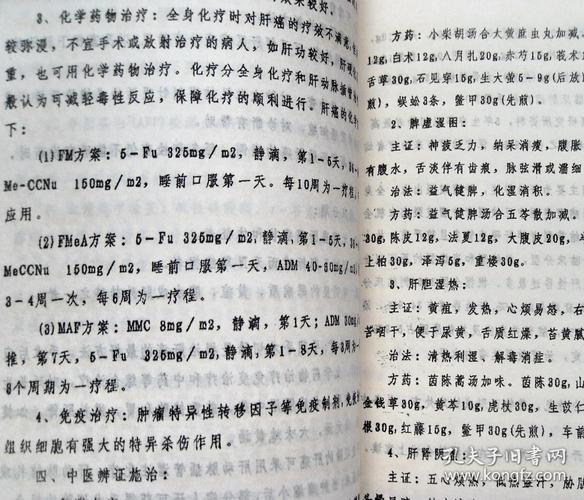 3、化学药物治疗：全身化疗时对肝癌的疗效不满意，
较弥漫，不宜手术或放射治疗的病人，如肝功较好，肝
重，也可用化学药物治疗。化疗分全身化疗和肝动脉插管
般认为可减轻毒性反应，保障化疗的顺利进行。肝癌的化
下：
(1)FM方案：5－Fu 325mg／m2，静滴，第1－5天，
Me-CCNu 150mg／m2，睡前口服第一天。每10周为一疗程，
应用。
(2)FMeA方案：5－Fu 325mg／m2，静滴，第1－5天，
MeCCNu 150mg／m2，睡前口服第一天，ADM 40-60mg／
3－4周一次，每6周为一疗程。
(3)MAF方案：MMC 8mg／m2，静滴，第1天；ADM
推，第7天，5－Fu 325mg／m2，静滴，第1－8天，每3周
8个周期为一疗程。
4、免疫治疗：肿瘤特异性转移因子等免疫制剂，
组织细胞有强大的特异杀伤作用。
四、中医辨证施治：
方药：小柴胡汤合大黄䗪虫丸加减。
12g，白术12g，八月扎20g，赤芍15g，莪术
舌草30g，石见穿15g，生大黄5－9g(后放
煎)，蜈蚣3条，鳖甲30g(先煎)。
2、脾虚湿困：
主证：神疲乏力，纳呆消瘦，腹胀
有腹水，舌淡伴有齿痕，脉弦滑或濡细
治法：益气健脾，化湿消积。
方药：益气健脾汤合五苓散加减。
30g，陈皮12g，法夏12g，大腹皮20g，
上柏30g，泽泻5g，重楼30g。
3、肝胆湿热：
主证：黄疸，发热，心烦易怒，
苔烟干，便子尿黄，舌质红燥，苔黄
治法：清热利湿、解毒消症。
方药：茵陈蒿汤加味。茵陈30g，
金钱草30g，黄芩10g，虎杖30g，生苡仁
根30g，红藤15g，鳖甲30g(先煎)，车前
4、肝肾阴亏：
主证：五心烦热，
孔夫子旧书网